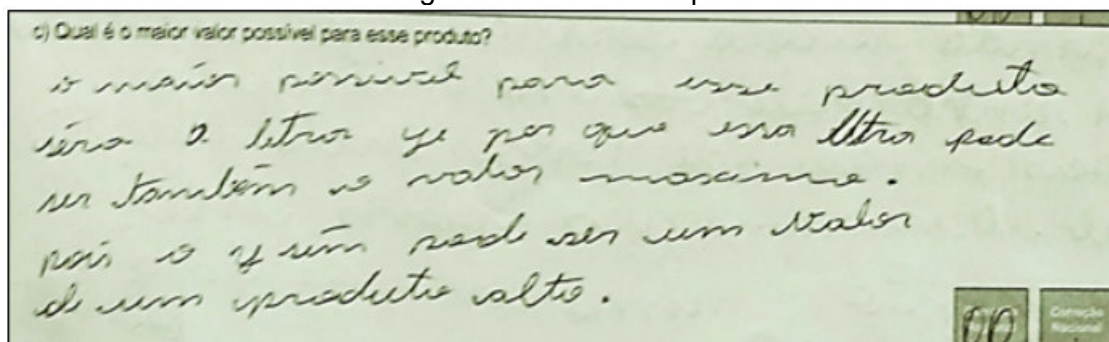 c) Qual é o maior valor possível para esse produto?
o maior possivel para esse produto
séra a letra ye por que essa letra pode
ser também o valor maximo.
pois o y sim pode ser um valor
de um produto alto.
00 Correção
Nacional